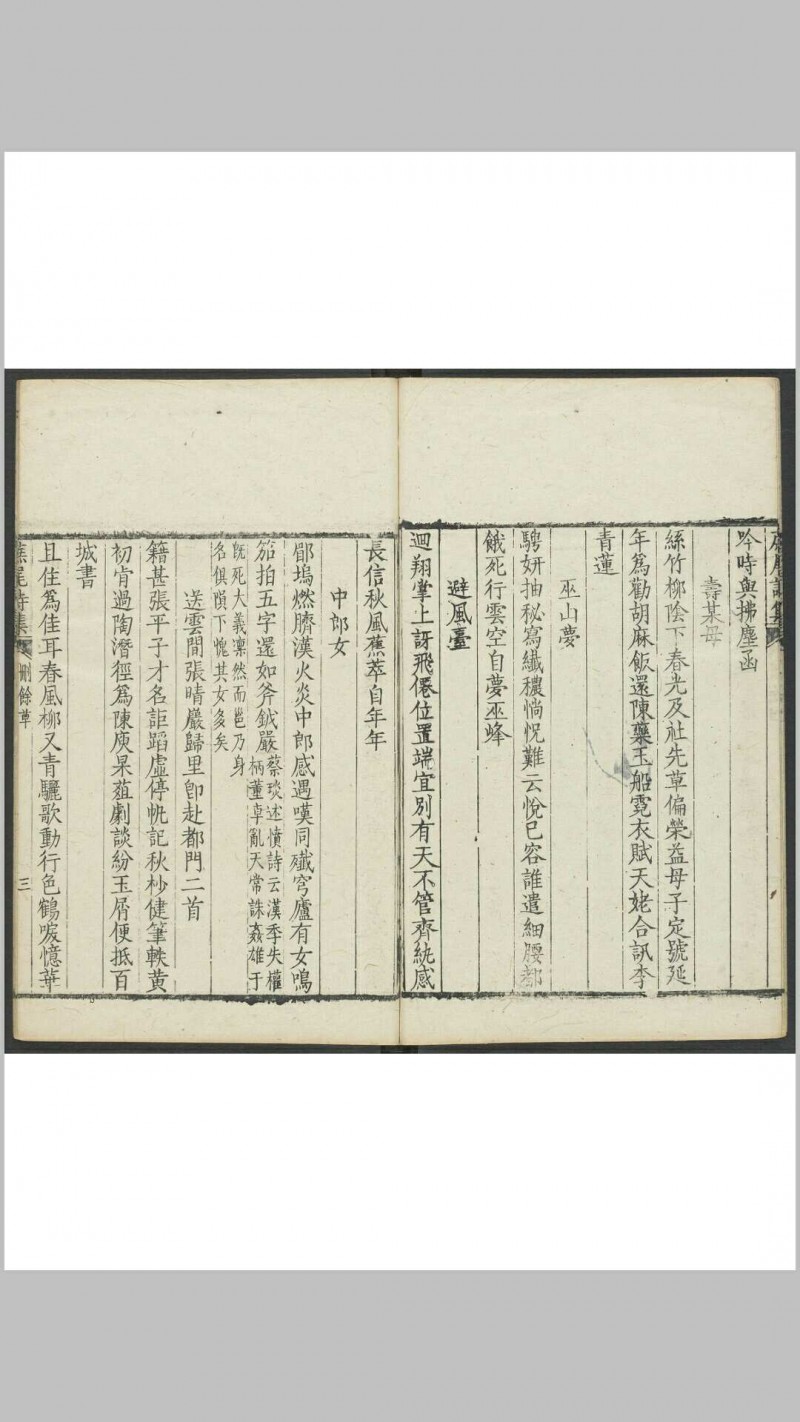 吟時與拂塵函
壽某母
絲竹柳陰下春光及祉先草偏榮益母子定號延
年為勸胡麻飯還陳藥玉船霓衣賦天姥合訊李
青蓮
巫山夢
騁妍抽秘寫纖穠惝怳難云悅已容誰遣細腰都
餓死行雲空自夢巫峰
避風臺
迴翔掌上訝飛僊位置端宜別有天不管齊紈感
長信秋風蕉萃自年年
中郎女
郿塢燃臍漢火炎中郎感遇嘆同殲穹廬有女鳴
笳拍五字還如斧鉞嚴
蔡琰述憤詩云漢季失權
柄董卓亂天常誅姦雄于
既死大義凜然而邕乃身
名俱隕下愧其女多矣
送雲間張晴巖歸里卽赴都門二首
籍甚張平子才名詎蹈虛停帆記秋杪健筆軼黃
初肯過陶潛徑為陳庾杲葅劇談紛玉屑便抵百
城書
且住為佳耳春風柳又青驪歌動行色鶴唳憶華
蕉尾詩集
刪餘草
三